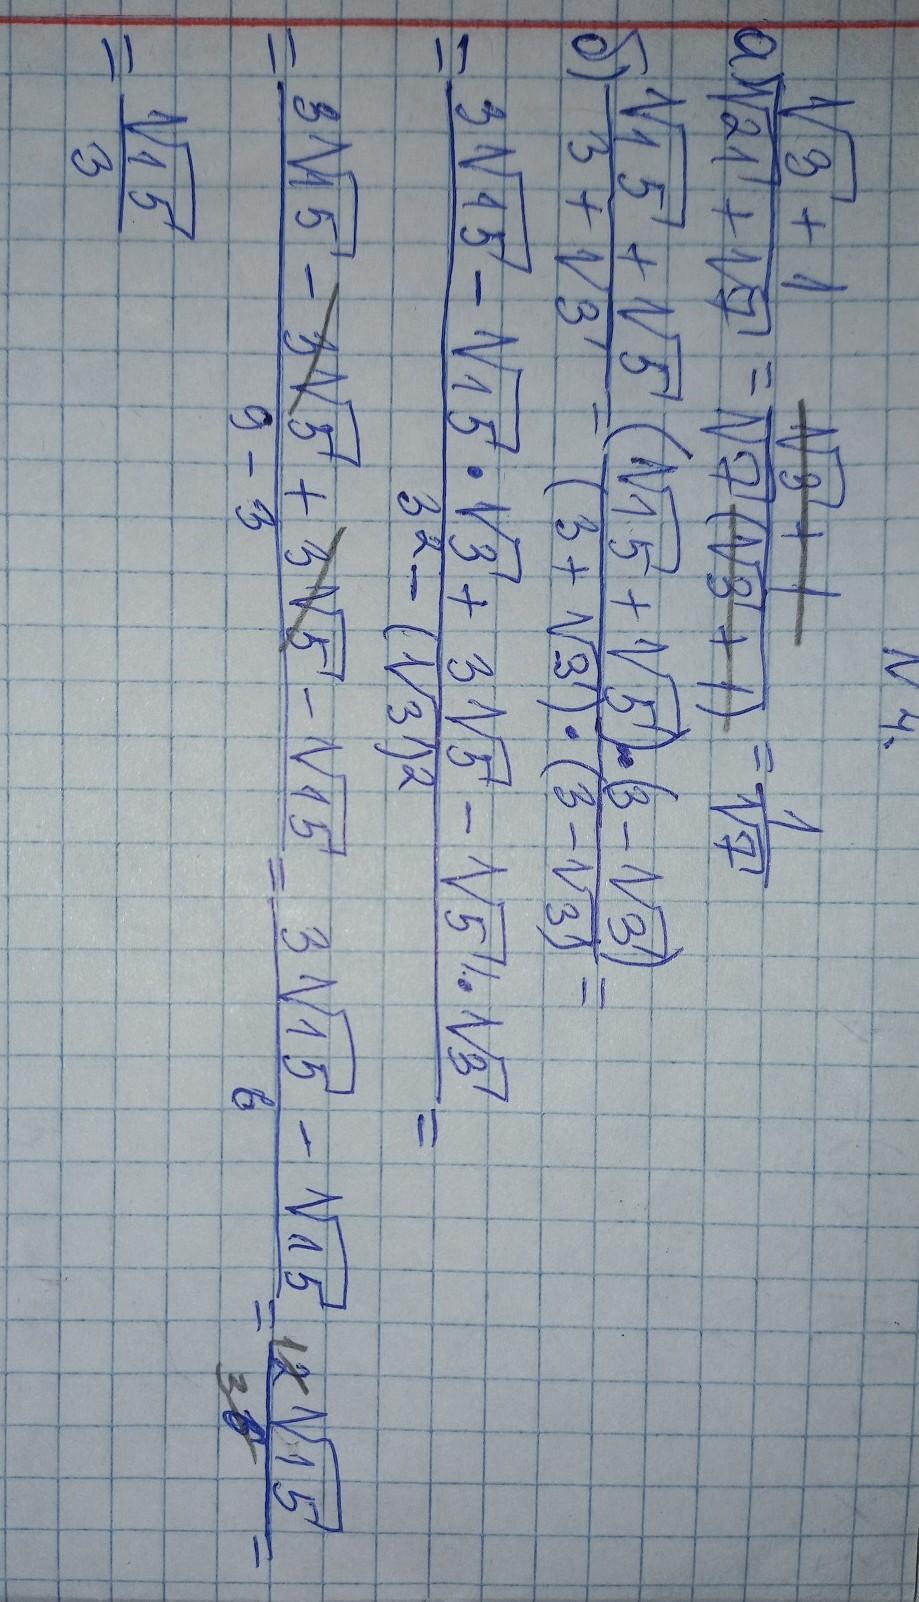 N 4.
а) (√3 + 1)/(√21 + √7) = (√3 + 1)/(√7(√3 + 1)) = 1/√7
б) (√15 + √5)/(3 + √3) = ((√15 + √5)·(3 − √3))/((3 + √3)·(3 − √3)) =
= (3√15 − √15·√3 + 3√5 − √5·√3)/(3² − (√3)²) =
= (3√15 − 3√5 + 3√5 − √15)/(9 − 3) = (3√15 − √15)/6 = (2√15)/6 =
= √15/3